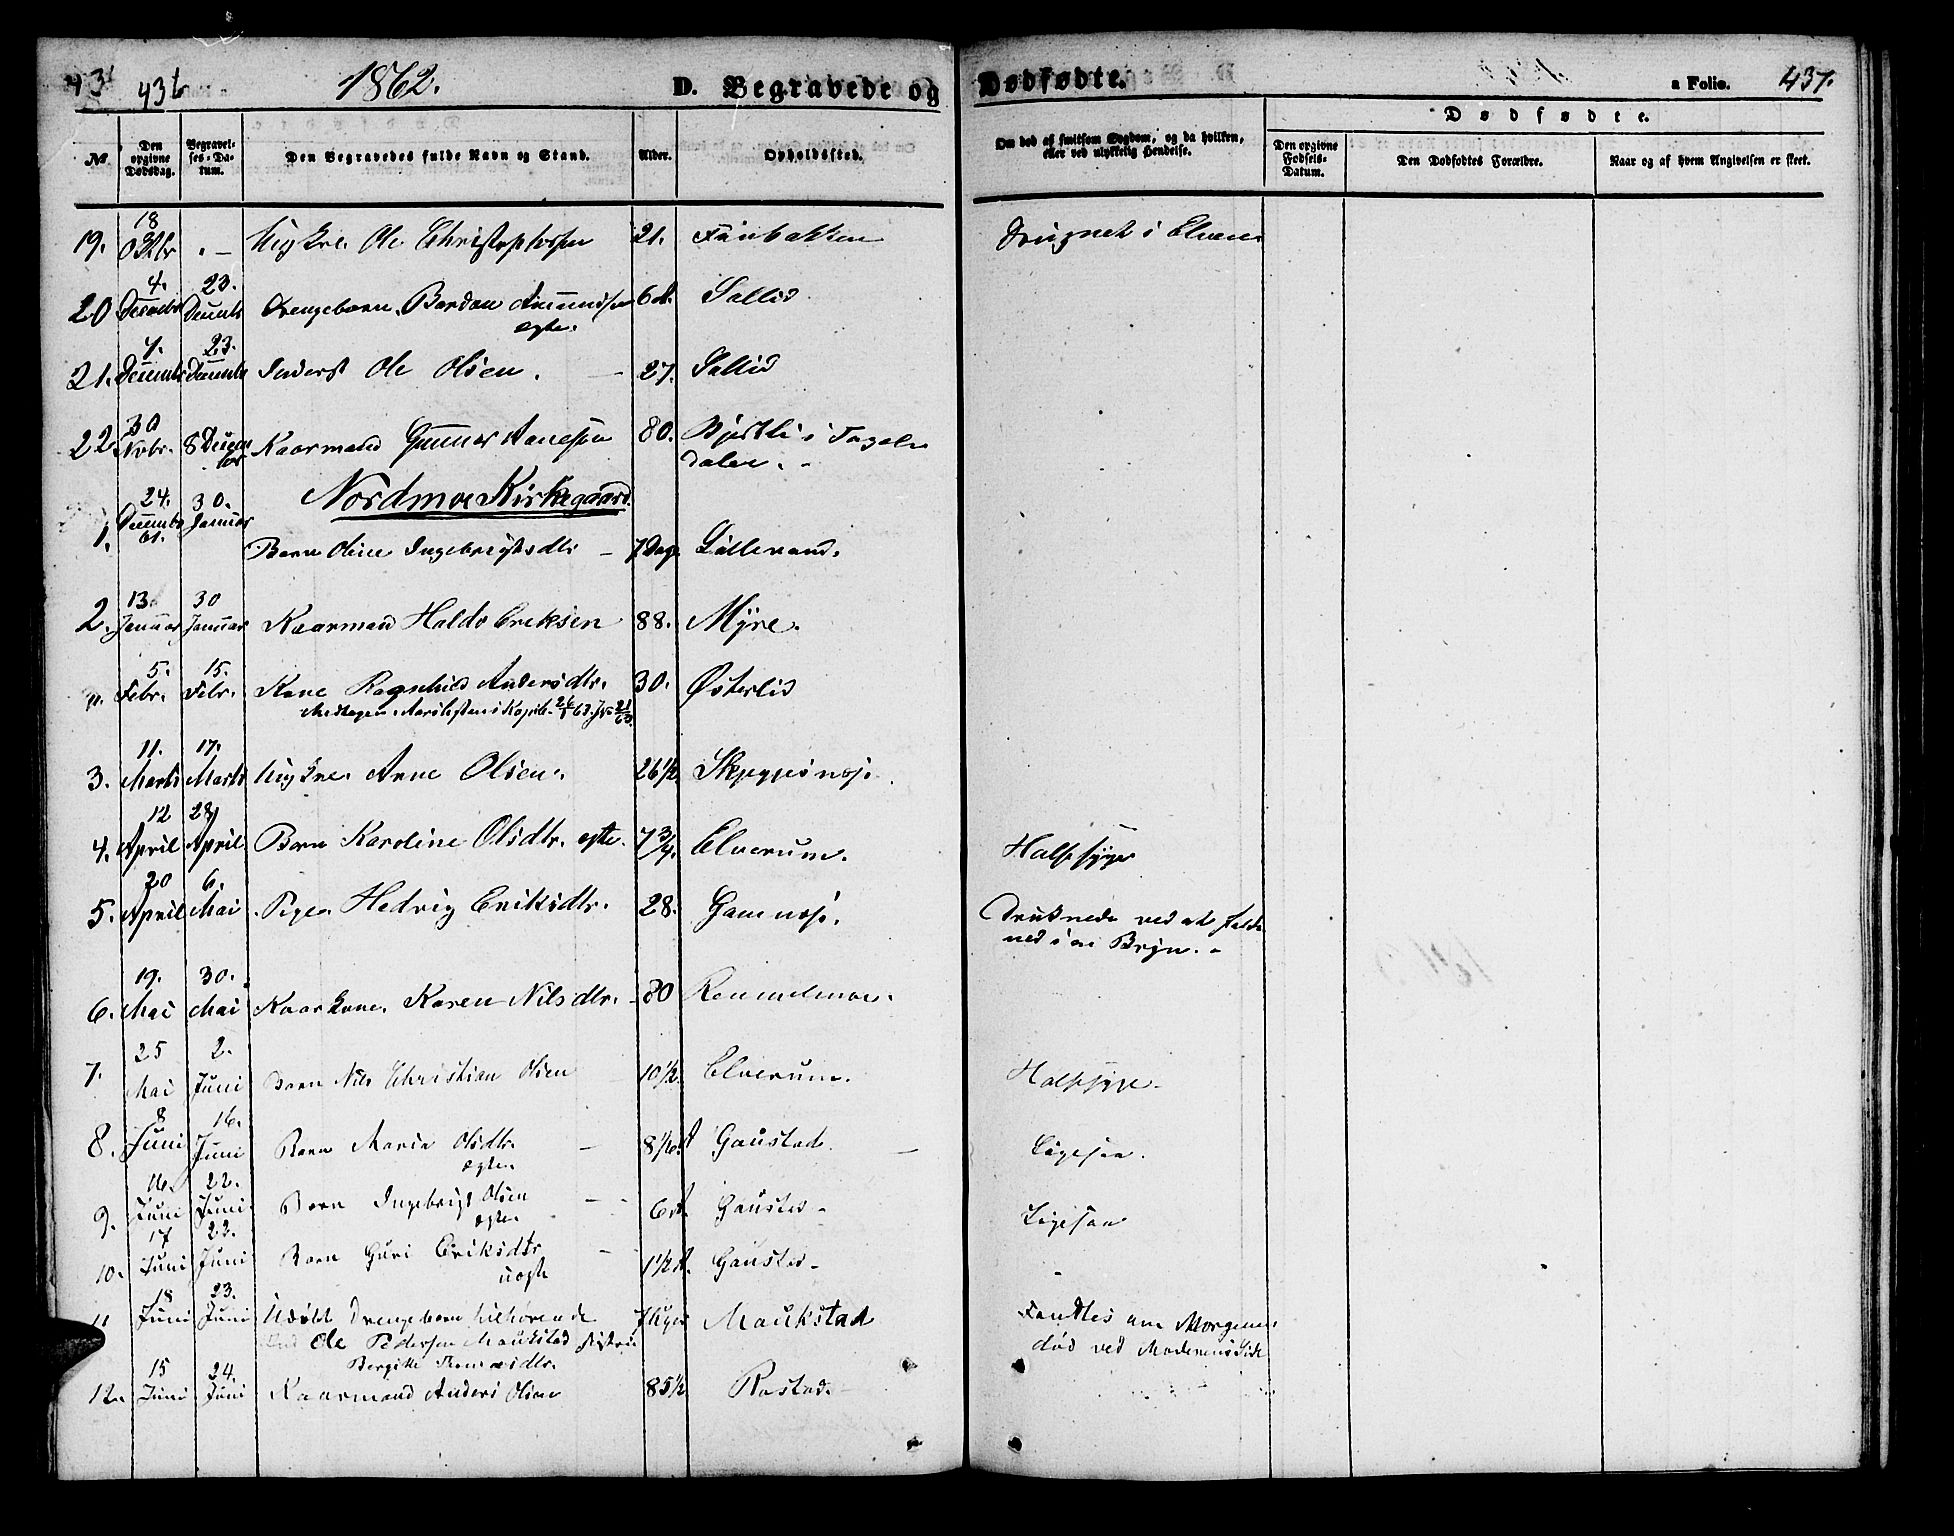 436 1862. D. Begravede og Dødfødte. a Folio. 437.
No. Den opgivne Dødsdag. Begravelses-Datum. Den Begravedes fulde Navn og Stand. Alder. Opholdssted. Om død af smitsom Sygdom, og da hvilken, eller ved ulykkelig Hendelse. Dødfødte.
Den opgivne Fødsels-Datum. Den Dødfødtes Forældre. Naar og af hvem Angivelsen er skeet.
19. 18 - Ole Christophersen 21. i Elven
20 4. Decembr 23. Decembr Drengebarn Bardon Amundsen ægte. 6 Sollid
21. 7. Decembr 23. Decembr Inderst Ole Olsen. 27. Sollid
22. 30 Nvbr. 8 Decem br Kaarmand Gunner Aanesen 80. i Fogel
dalen.
Nordmoe Kirkegaard.
1. 24. Decembr 61. 30. Januar Barn Oline Ingebrigtsdtr 7 Dag. Lillevand.
2. 13. Januar 30 Januar Kaarmand Haldo Eriksen 88. Myre.
5. Febr. 15. Febr. Kone Ragnhild Andersdtr. 30. Østerlid
3. 11. Marts 17. Marts Anne Olsen. 26 1/2
4. 12 April 28 April Barn Karoline Olsdtr. ægte. 7 3/4. Elverum. Halssyge
5. 20 April 6. Mai Pige Hedvig Eriksdtr. 28. Druknede ved at falde
ned i en Brøn.
6. 19. Mai 30. Mai Kaarkone Karen Nilsdtr. 80
7. 25 Mai 2. Juni Barn Nils Christian Olsen 10 1/2. Elverum. Halssyge.
8. 8 Juni 16. Juni Barn Maria Olsdtr. ægte. 8 1/6 Gaustad. Ligesaa.
9. 16. Juni 22. Juni Barn Ingebrigt Olsen ægte. 6 Gaustad Ligesaa
10. 17 Juni 23. Juni Barn Guri Eriksdtr. uægte 1 1/2 Gaustad
11 18 Juni 23. Juni Udøbt Drengebarn tilhørende 7 Uger Maukstad Fandtes om Morgenen
Ole Pedersen Maukstad død ved Moderens Side
Bergitte Thomasdtr.
12. 15 Juni 24. Juni Kaarmand Anders Olsen 85 1/2 Rostad